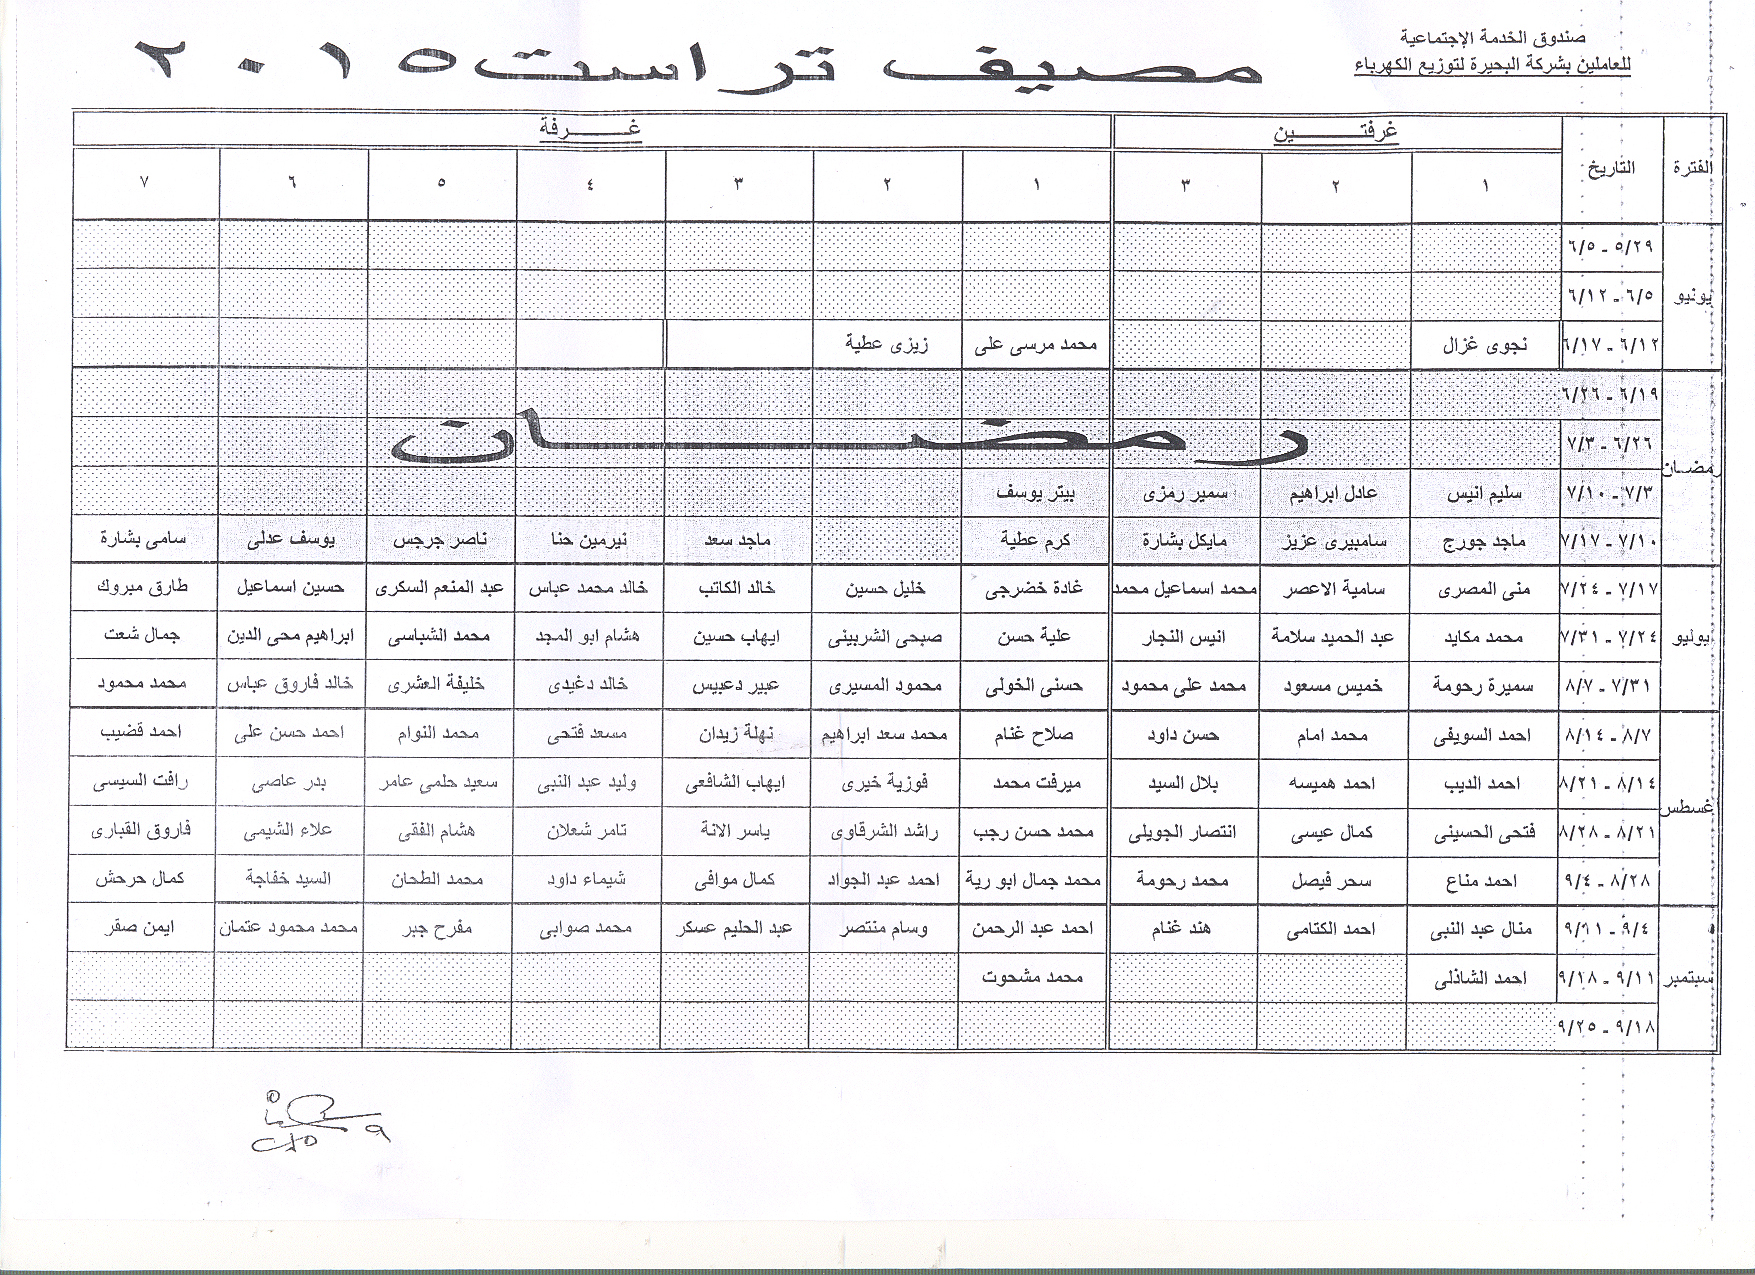 صندوق الخدمة الإجتماعية
للعاملين بشركة البحيرة لتوزيع الكهرباء
مصيف تراست ٢٠١٥
الفترة التاريخ غرفتـــين غـــرفة
١ ٢ ٣ ١ ٢ ٣ ٤ ٥ ٦ ٧
يونيو
٥/٢٩ - ٦/٥
٦/٥ - ٦/١٢
٦/١٢ - ٦/١٧ نجوى غزال محمد مرسى على زيزى عطية
رمضـان
٦/١٩ - ٦/٢٦
٦/٢٦ - ٧/٣
رمضــان
٧/٣ - ٧/١٠ سليم انيس عادل ابراهيم سمير رمزى بيتر يوسف
٧/١٠ - ٧/١٧ ماجد جورج سامبيرى عزيز مايكل بشارة كرم عطية ماجد سعد نيرمين حنا ناصر جرجس يوسف عدلى سامى بشارة
يوليو
٧/١٧ - ٧/٢٤ منى المصرى سامية الاعصر محمد اسماعيل محمد غادة خضرجى خليل حسين خالد الكاتب خالد محمد عباس عبد المنعم السكرى حسين اسماعيل طارق مبروك
٧/٢٤ - ٧/٣١ محمد مكايد عبد الحميد سلامة انيس النجار علية حسن صبحى الشربينى ايهاب حسين هشام ابو المجد محمد الشباسى ابراهيم محى الدين جمال شعت
٧/٣١ - ٨/٧ سميرة رحومة خميس مسعود محمد على محمود حسنى الخولى محمود المسيرى عبير دعبيس خالد دغيدى خليفة العشرى خالد فاروق عباس محمد محمود
غسطس
٨/٧ - ٨/١٤ احمد السويفى محمد امام حسن داود صلاح غنام محمد سعد ابراهيم نهلة زيدان مسعد فتحى محمد النوام احمد حسن على احمد قضيب
٨/١٤ - ٨/٢١ احمد الديب احمد هميسه بلال السيد ميرفت محمد فوزية خيرى ايهاب الشافعى وليد عبد النبى سعيد حلمى عامر بدر عاصى رافت السيسى
٨/٢١ - ٨/٢٨ فتحى الحسينى كمال عيسى انتصار الجويلى محمد حسن رجب راشد الشرقاوى ياسر الانة تامر شعلان هشام الفقى علاء الشيمى فاروق القبارى
٨/٢٨ - ٩/٤ احمد مناع سحر فيصل محمد رحومة محمد جمال ابو رية احمد عبد الجواد كمال موافى شيماء داود محمد الطحان السيد خفاجة كمال حرحش
سبتمبر
٩/٤ - ٩/١١ منال عبد النبى احمد الكتامى هند غنام احمد عبد الرحمن وسام منتصر عبد الحليم عسكر محمد صوابى مفرح جبر محمد محمود عتمان ايمن صقر
٩/١١ - ٩/١٨ احمد الشاذلى محمد مشحوت
٩/١٨ - ٩/٢٥